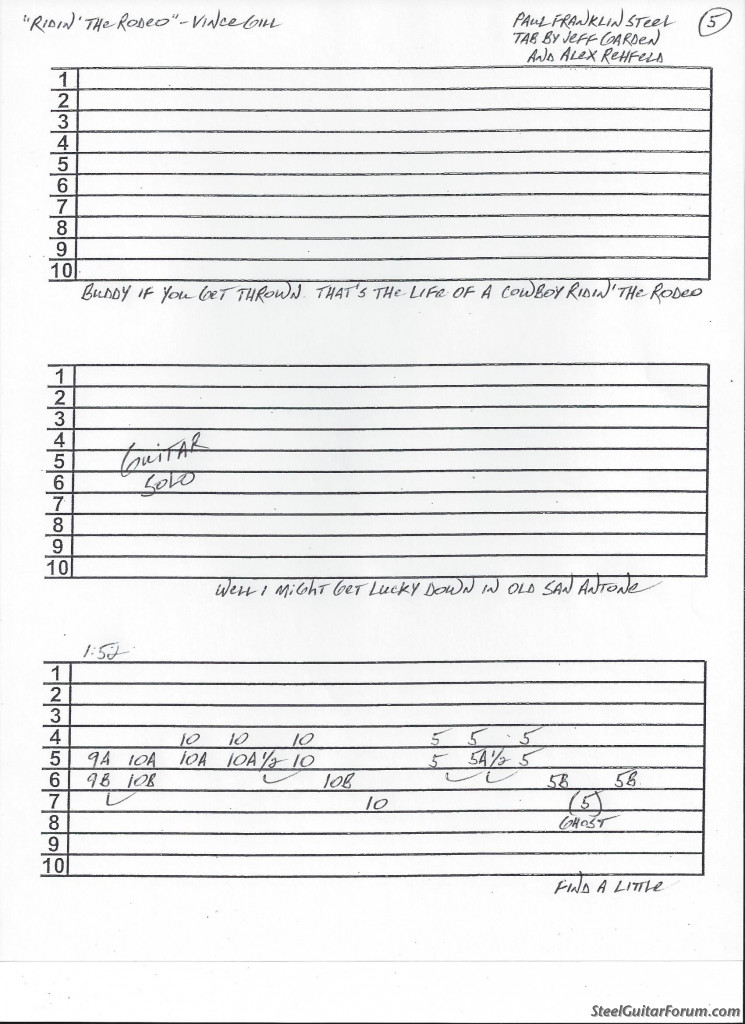 "Ridin' The Rodeo" - Vince Gill
Paul Franklin Steel
Tab by Jeff Garden
and Alex Rehfeld
5
1
2
3
4
5
6
7
8
9
10
Buddy if you get thrown. That's the life of a cowboy ridin' the rodeo
1
2
3
4
5
6
7
8
9
10
Guitar
Solo
Well I might get lucky down in old San Antone
1:52
1
2
3
4 10 10 10 5 5 5
5 9A 10A 10A 10A½ 10 5 5A½ 5
6 9B 10B 10B 5B 5B
7 10 (5)
8 Ghost
9
10
Find a little
SteelGuitarForum.com